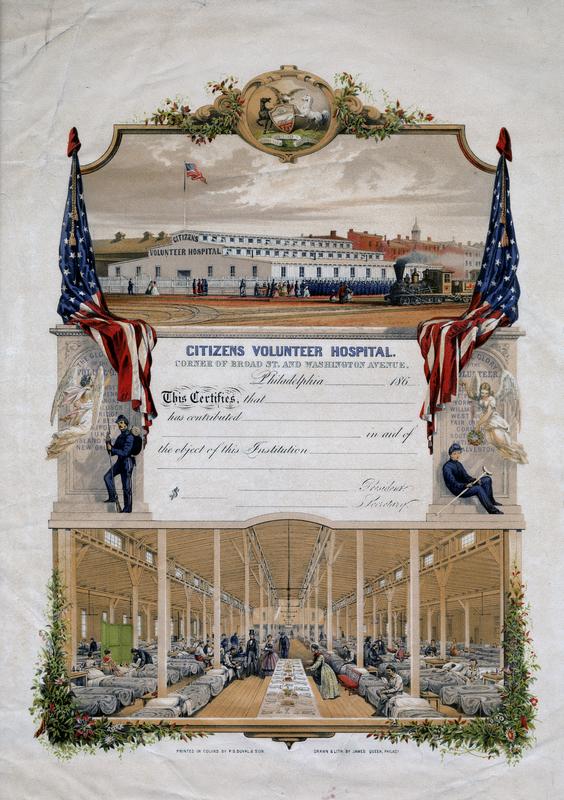 CITIZENS
VOLUNTEER HOSPITAL
CITIZENS VOLUNTEER HOSPITAL.
CORNER OF BROAD ST. AND WASHINGTON AVENUE,
Philadelphia 186
This Certifies, that
has contributed
in aid of
the object of this Institution
President
Secretary
GLORY
WILLIAM
WEST
FAIR
PRINTED IN COLORS BY P.S. DUVAL & SON.
DRAWN & LITH. BY JAMES QUEEN, PHILADA